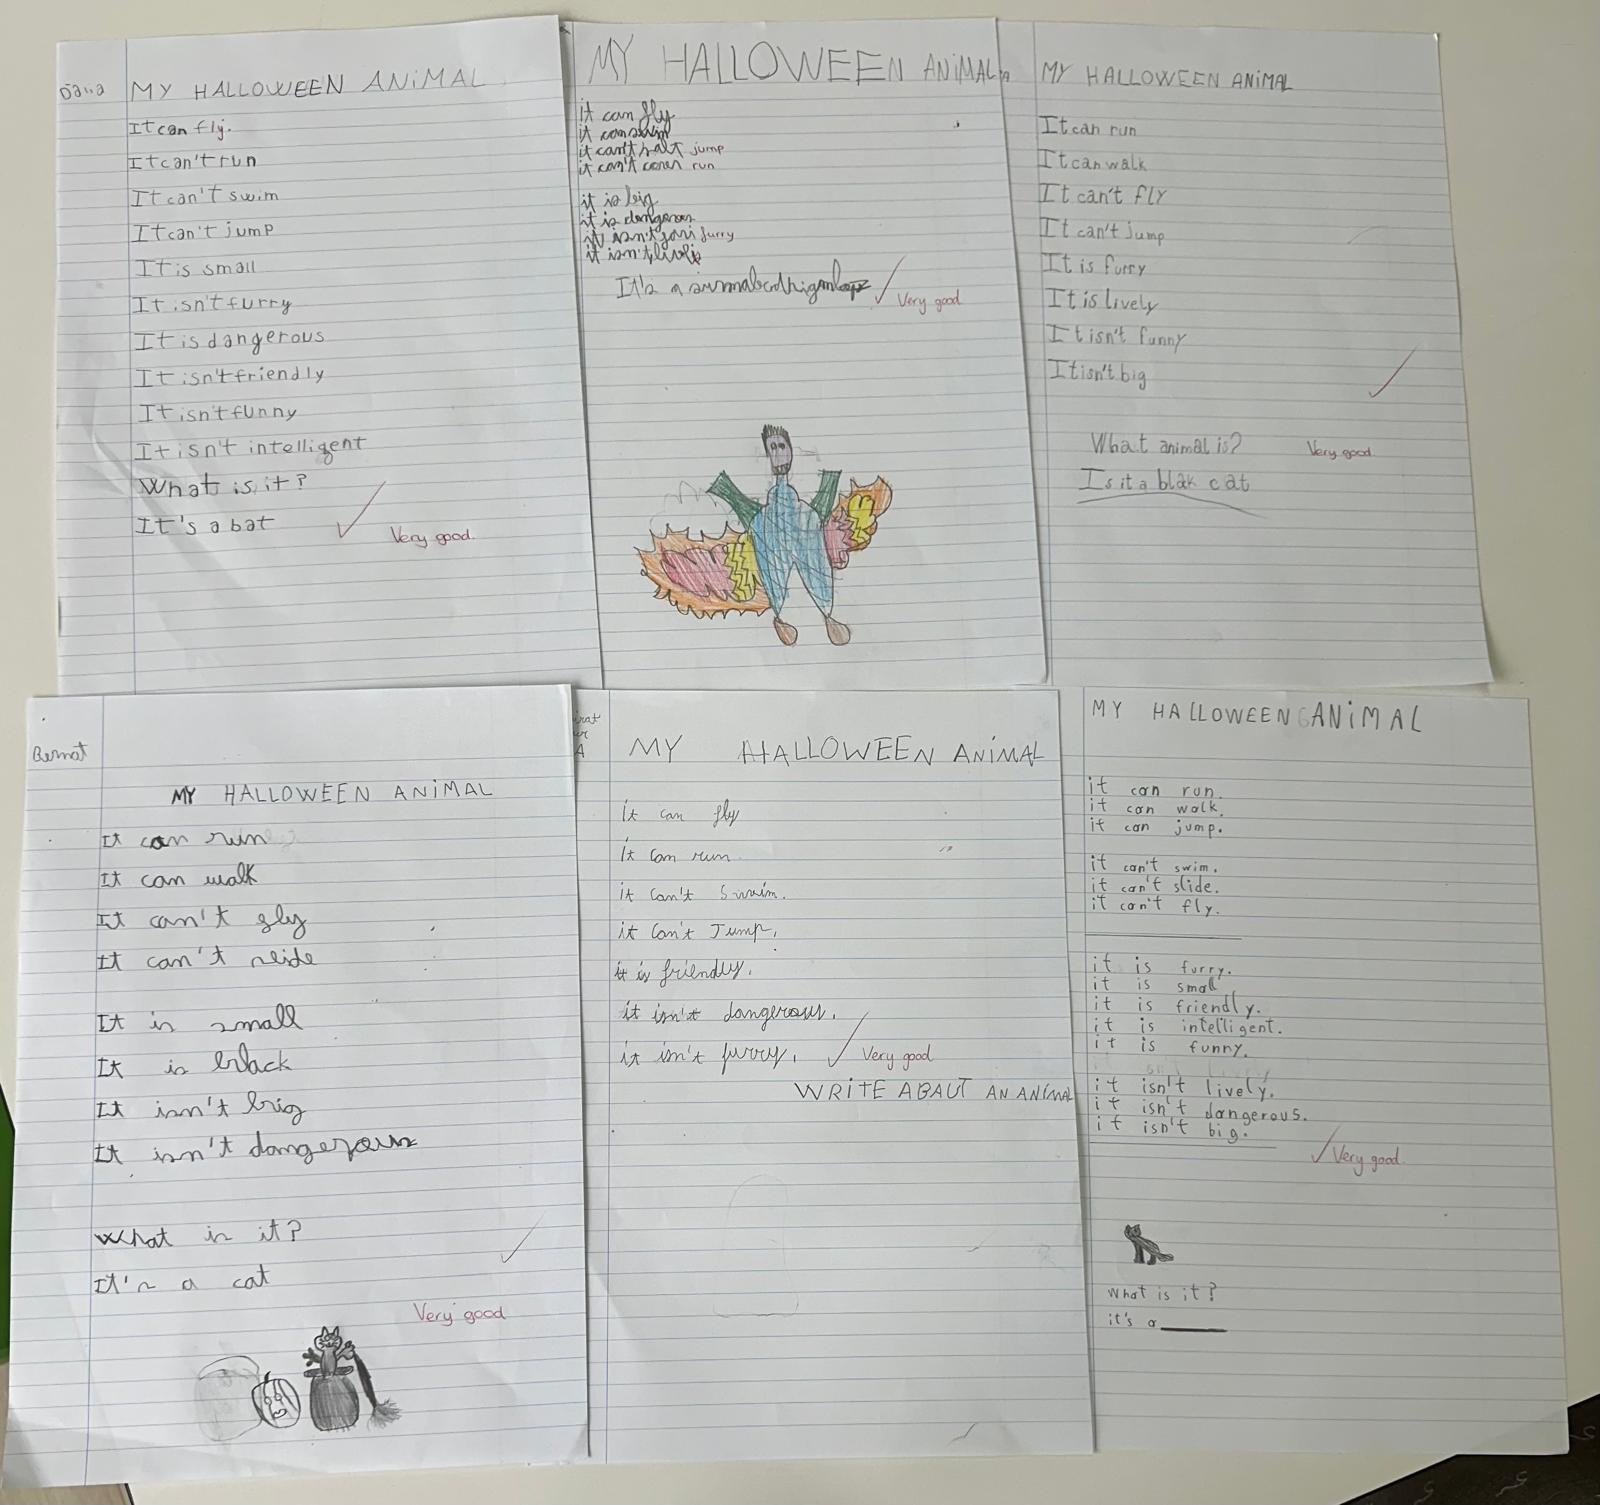 Dana
MY HALLOWEEN ANiMAL
It can fly.
It can't run
It can't swim
It can't jump
It is small
It isn't furry
It is dangerous
It isn't friendly
It isn't funny
It isn't intelligent
What is it?
It's a bat
Very good.
MY HALLOWEEN ANiMAL
it can fly
it can swim
it can't jump
it can't run
it is big
it is dangerous
it isn't furry
it isn't
It's a
Very good
MY HALLOWEEN ANIMAL
It can run
It can walk
It can't fly
It can't jump
It is furry
It is lively
It isn't funny
It isn't big
What animal is?
Very good.
Is it a blak cat
Bernat
MY HALLOWEEN ANIMAL
It can run
It can walk
It can't fly
It can't
It is small
It is black
It isn't big
It isn't dangerous
What is it?
It's a cat
Very good
MY HALLOWEEN ANiMAL
it can fly
it can run
it can't swim.
it can't Jump.
it is friendly.
it isn't dangerous.
it isn't furry.
Very good
WRiTE ABAUT AN ANiMAL
MY HALLOWEEN ANiMAL
it can run.
it can walk.
it can jump.
it can't swim.
it can't slide.
it can't fly.
it is furry.
it is small
it is friendly.
it is intelligent.
it is funny.
it isn't lively.
it isn't dangerous.
it isn't big.
Very good.
What is it?
it's a